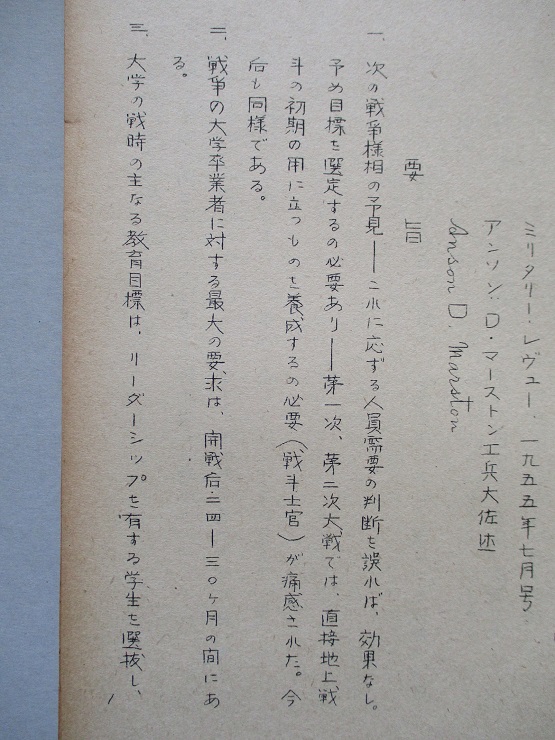 ミリタリー・レヴュー、一九五五年七月号
アンソン、D・マーストン工兵大佐述
Anson D. Marston
要旨
一、次の戦争様相の予見――これに応ずる人員需要の判断を誤れば、効果なし。
予め目標を選定するの必要あり――第一次、第二次大戦では、直接地上戦
斗の初期の用に立つものを養成するの必要(戦斗士官)が痛感された。今
后も同様である。
二、戦争の大学卒業者に対する最大の要求は、開戦后二四―三〇ヶ月の間にあ
る。
三、大学の戦時の主なる教育目標は、リーダーシップを有する学生を選抜し、